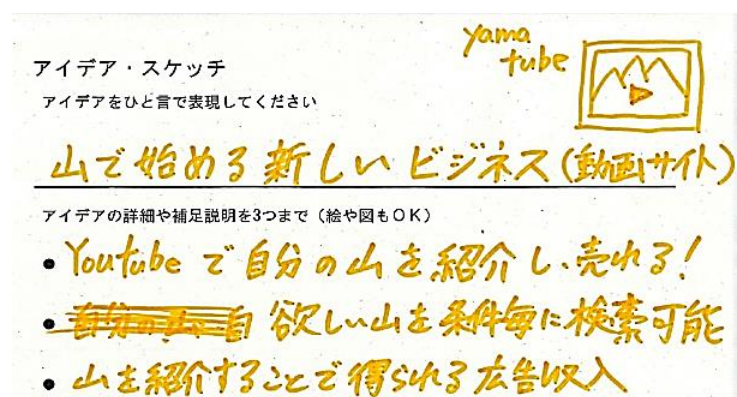 yama
tube
アイデア・スケッチ
アイデアをひと言で表現してください
山で始める新しいビジネス(動画サイト)
アイデアの詳細や補足説明を3つまで(絵や図もOK)
• Youtubeで自分の山を紹介し、売れる!
• 欲しい山を条件毎に検索可能
• 山を紹介することで得られる広告収入